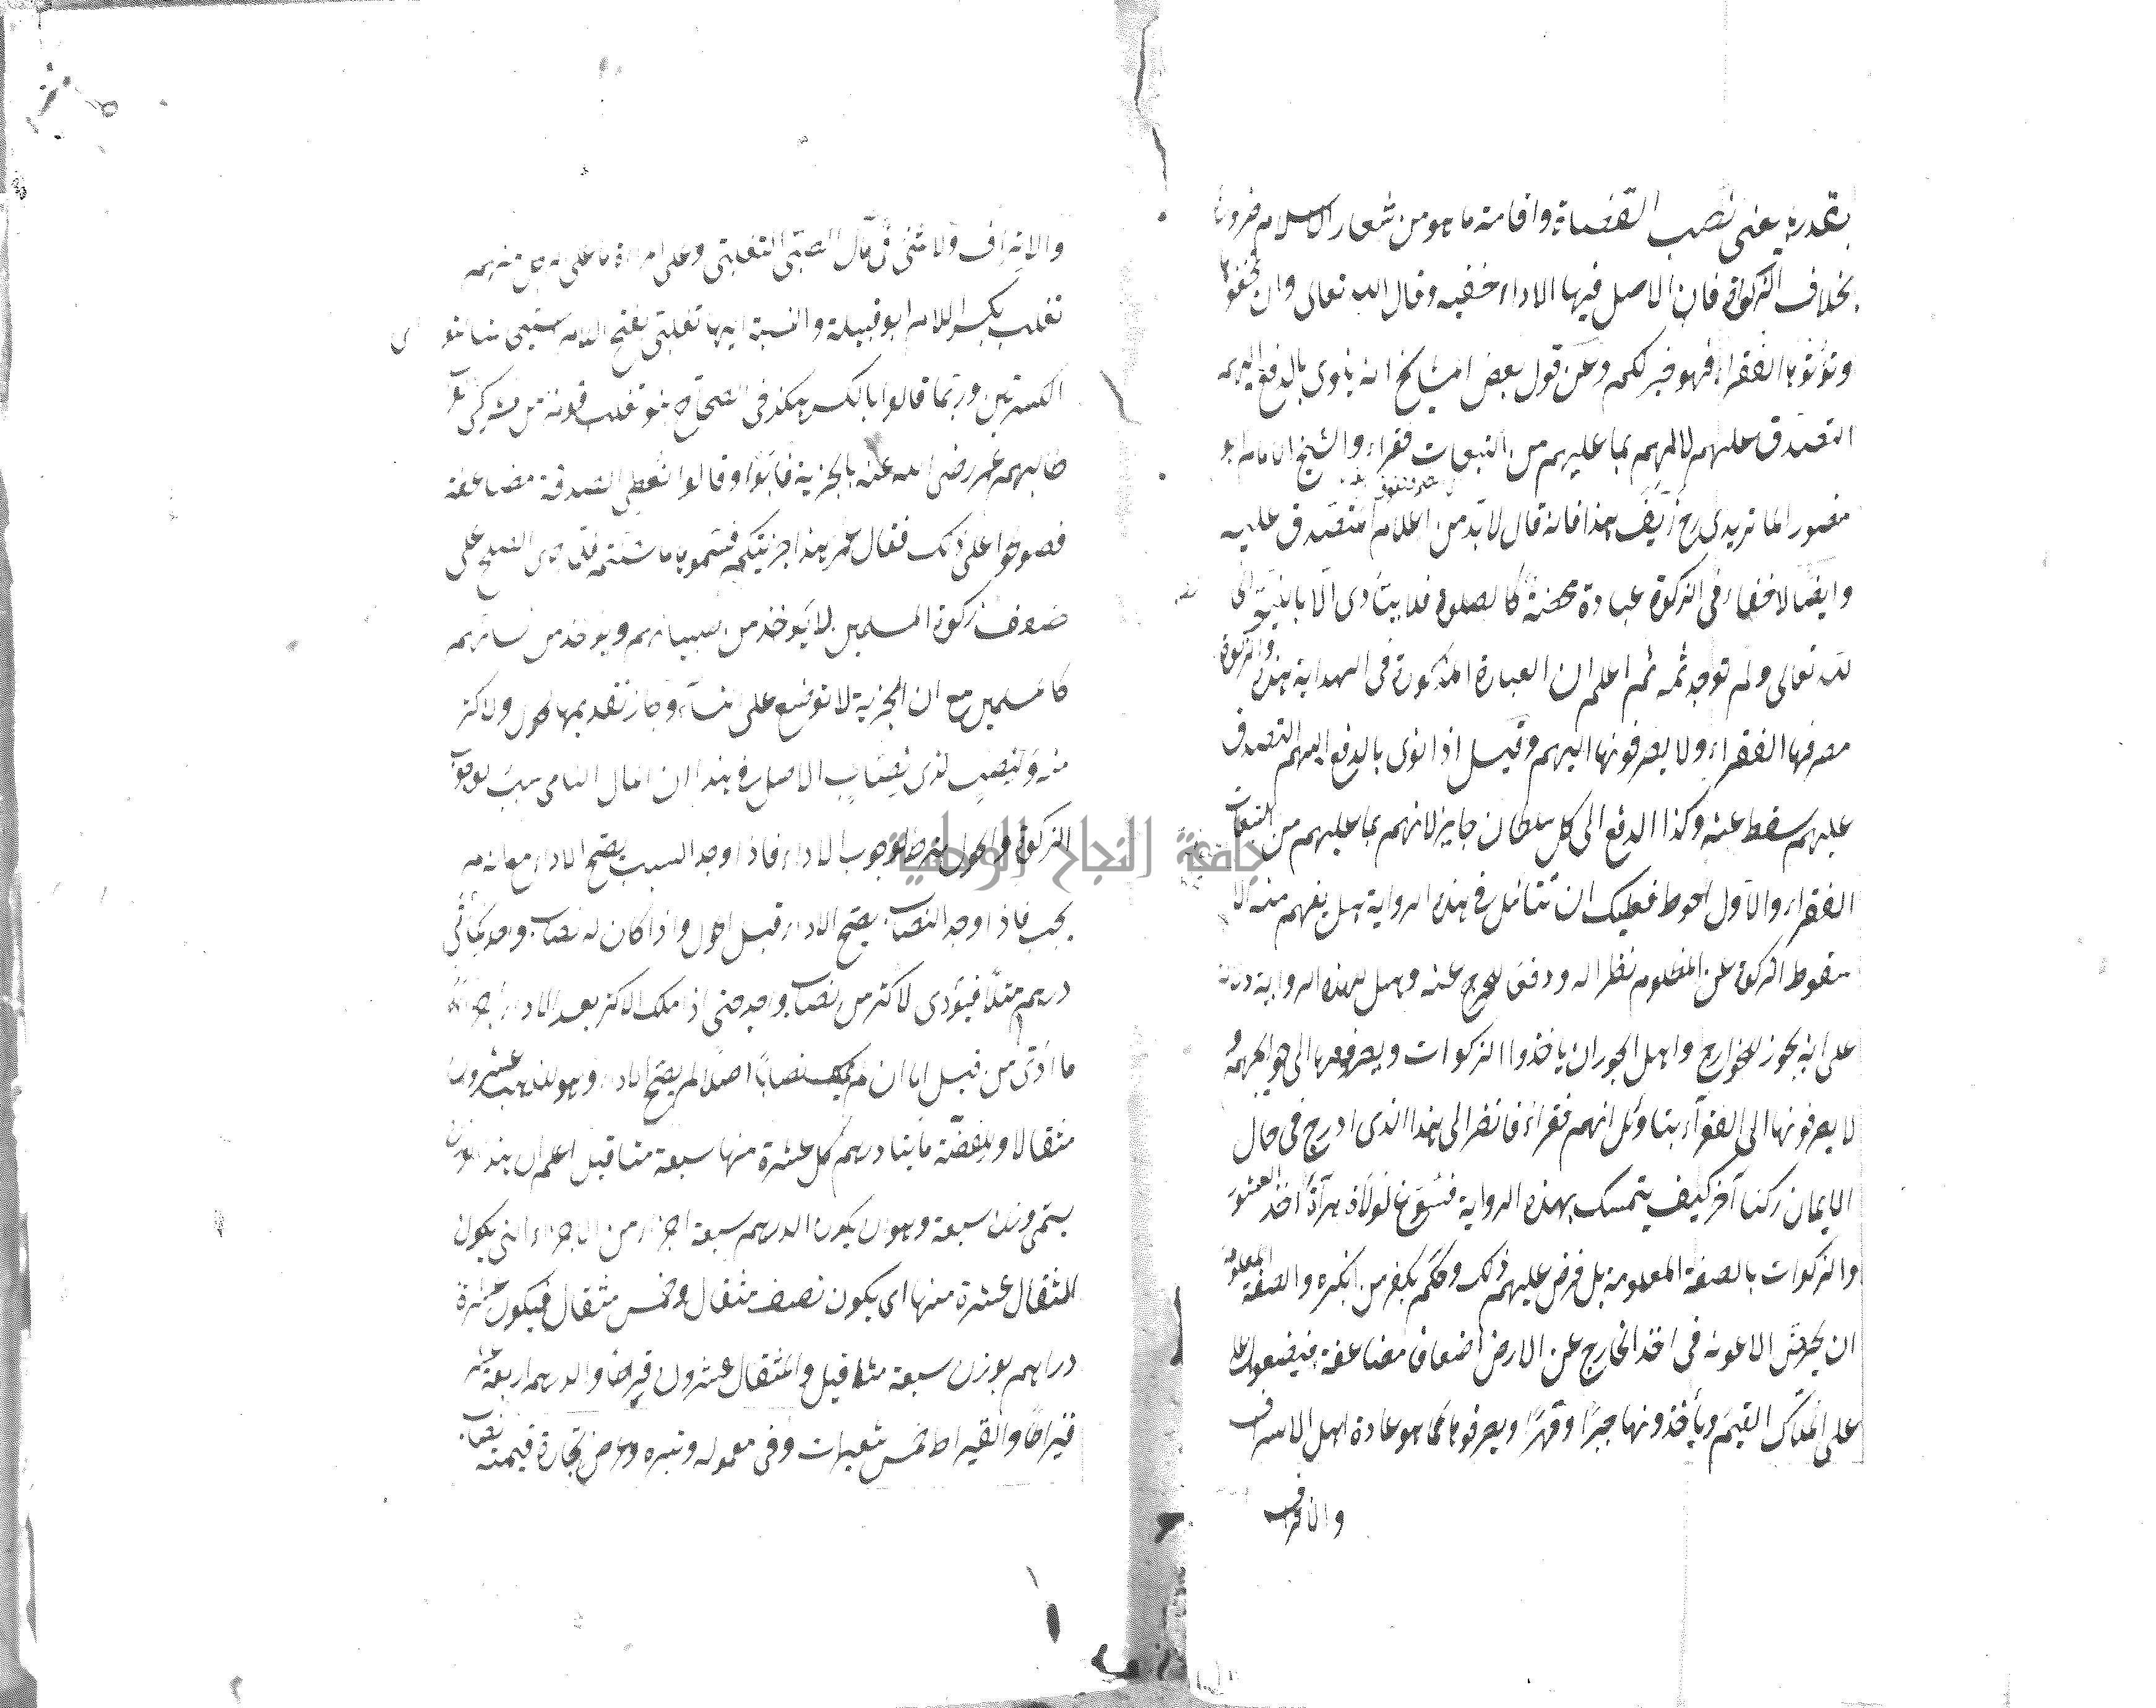 بقدره يعنى نصب القضاة واقامة ما هو من شعار الاسلام ضرورة
بخلاف الزكوة فان الاصل فيها الاداء خفية وقال الله تعالى وان تخفوها
وتؤتوها الفقراء فهو خير لكم وعن قول بعض المشايخ انه ينوى بالدفع اليهم
التصدق عليهم لانهم بما عليهم من التبعات فقراء والشيخ الامام ابو
منصور الماتريدى رح زيف هذا فانه قال لا بد من اعلام المتصدق عليه
وايضا لا خفاء فى الزكوة عبادة محضة كالصلوة فلا يتأدى الا بالنية
لله تعالى ولم توجد ثمه ثم اعلم ان العبارة المذكورة فى الهداية هذه والزكوة
مصرفها الفقراء ولا يصرفونها اليهم وقيل اذا نوى بالدفع اليهم التصدق
عليهم سقط عنه وكذا الدفع الى كل سلطان جاير لانهم بما عليهم من التبعات
الفقراء والاول احوط فعليك ان تتأمل فى هذه الرواية هل يفهم منه الا
سقوط الزكوة عن المظلوم نظرا له ودفعا للحرج عنه وهل لهذه الرواية دلالة
على انه يجوز للخوارج واهل الجور ان ياخذوا الزكوات ويصرفونها الى حوائجهم و
لا يصرفونها الى الفقراء بتاويل انهم فقراء فانظر الى هذا الذى ادرج فى حال
الايمان ركنا آخر كيف يتمسك بهذه الرواية فسوغ لولاة هراة اخذ العشور
والزكوات بالصفة المعلومة بل فرض عليهم ذلك وحكم بكفر من انكره والصفة المعلومة
ان يحرض الاعونه فى اخذ الخارج عن الارض اضعافا مضاعفة فيضعوا
على الملاك القيم ويأخذونها جبرا وقهرا ويصرفونها كما هو عادة اهل الاسراف
والاتراف
والاتراف ولا شئ فى مال الصبى التغلبى وعلى المراة ما على الرجل منهم
تغلب بكسر اللام ابو قبيلة والنسبة اليها تغلبى بفتح اللام
الكسرتين وربما قالوا بالكسر هكذا فى الصحاح بنو تغلب قوم من مشركى
طالبهم عمر رضى الله عنه بالجزية فابوا وقالوا نعطى الصدقة مضاعفة
فصولحوا على ذلك فقال عمر هذا جزيتكم فسموها ما شئتم فلما جرى الصلح على
ضعف زكوة المسلمين لا يؤخذ من صبيانهم ويؤخذ من نسائهم
كالمسلمين مع ان الجزية لا توضع على النساء وجاز تقديمها لحول ولاكثر
منه ولنصب لذى نصاب الاصل فى هذا ان المال النامى سبب لوجوب
الزكوة والحول شرط لوجوب الاداء فاذا وجد السبب يصح الاداء مع انه لم
يجب فاذا وجد النصاب يصح الاداء قبل الحول واذا كان له نصاب واحد كمائتى
درهم مثلا فيؤدى لاكثر من نصاب واحد حتى اذا ملك الاكثر بعد الاداء
ما ادى من قبل اما ان لم يملك نصابا اصلا لم يصح الاداء وهو للذهب عشرون
مثقالا وللفضة مائتا درهم كل عشرة منها سبعة مثاقيل اعلم ان هذا الوزن
يسمى وزن سبعة وهو ان يكون الدرهم سبعة اجزاء من الاجزاء التى يكون
المثقال عشرة منها اى يكون نصف مثقال وخمس مثقال فيكون عشرة
دراهم بوزن سبعة مثاقيل والمثقال عشرون قيراطا والدرهم اربعة عشر
قيراطا والقيراط خمس شعيرات وفى معموله وتبره وعرض تجارة قيمته نصاب
جامعة النجاح الوطنية